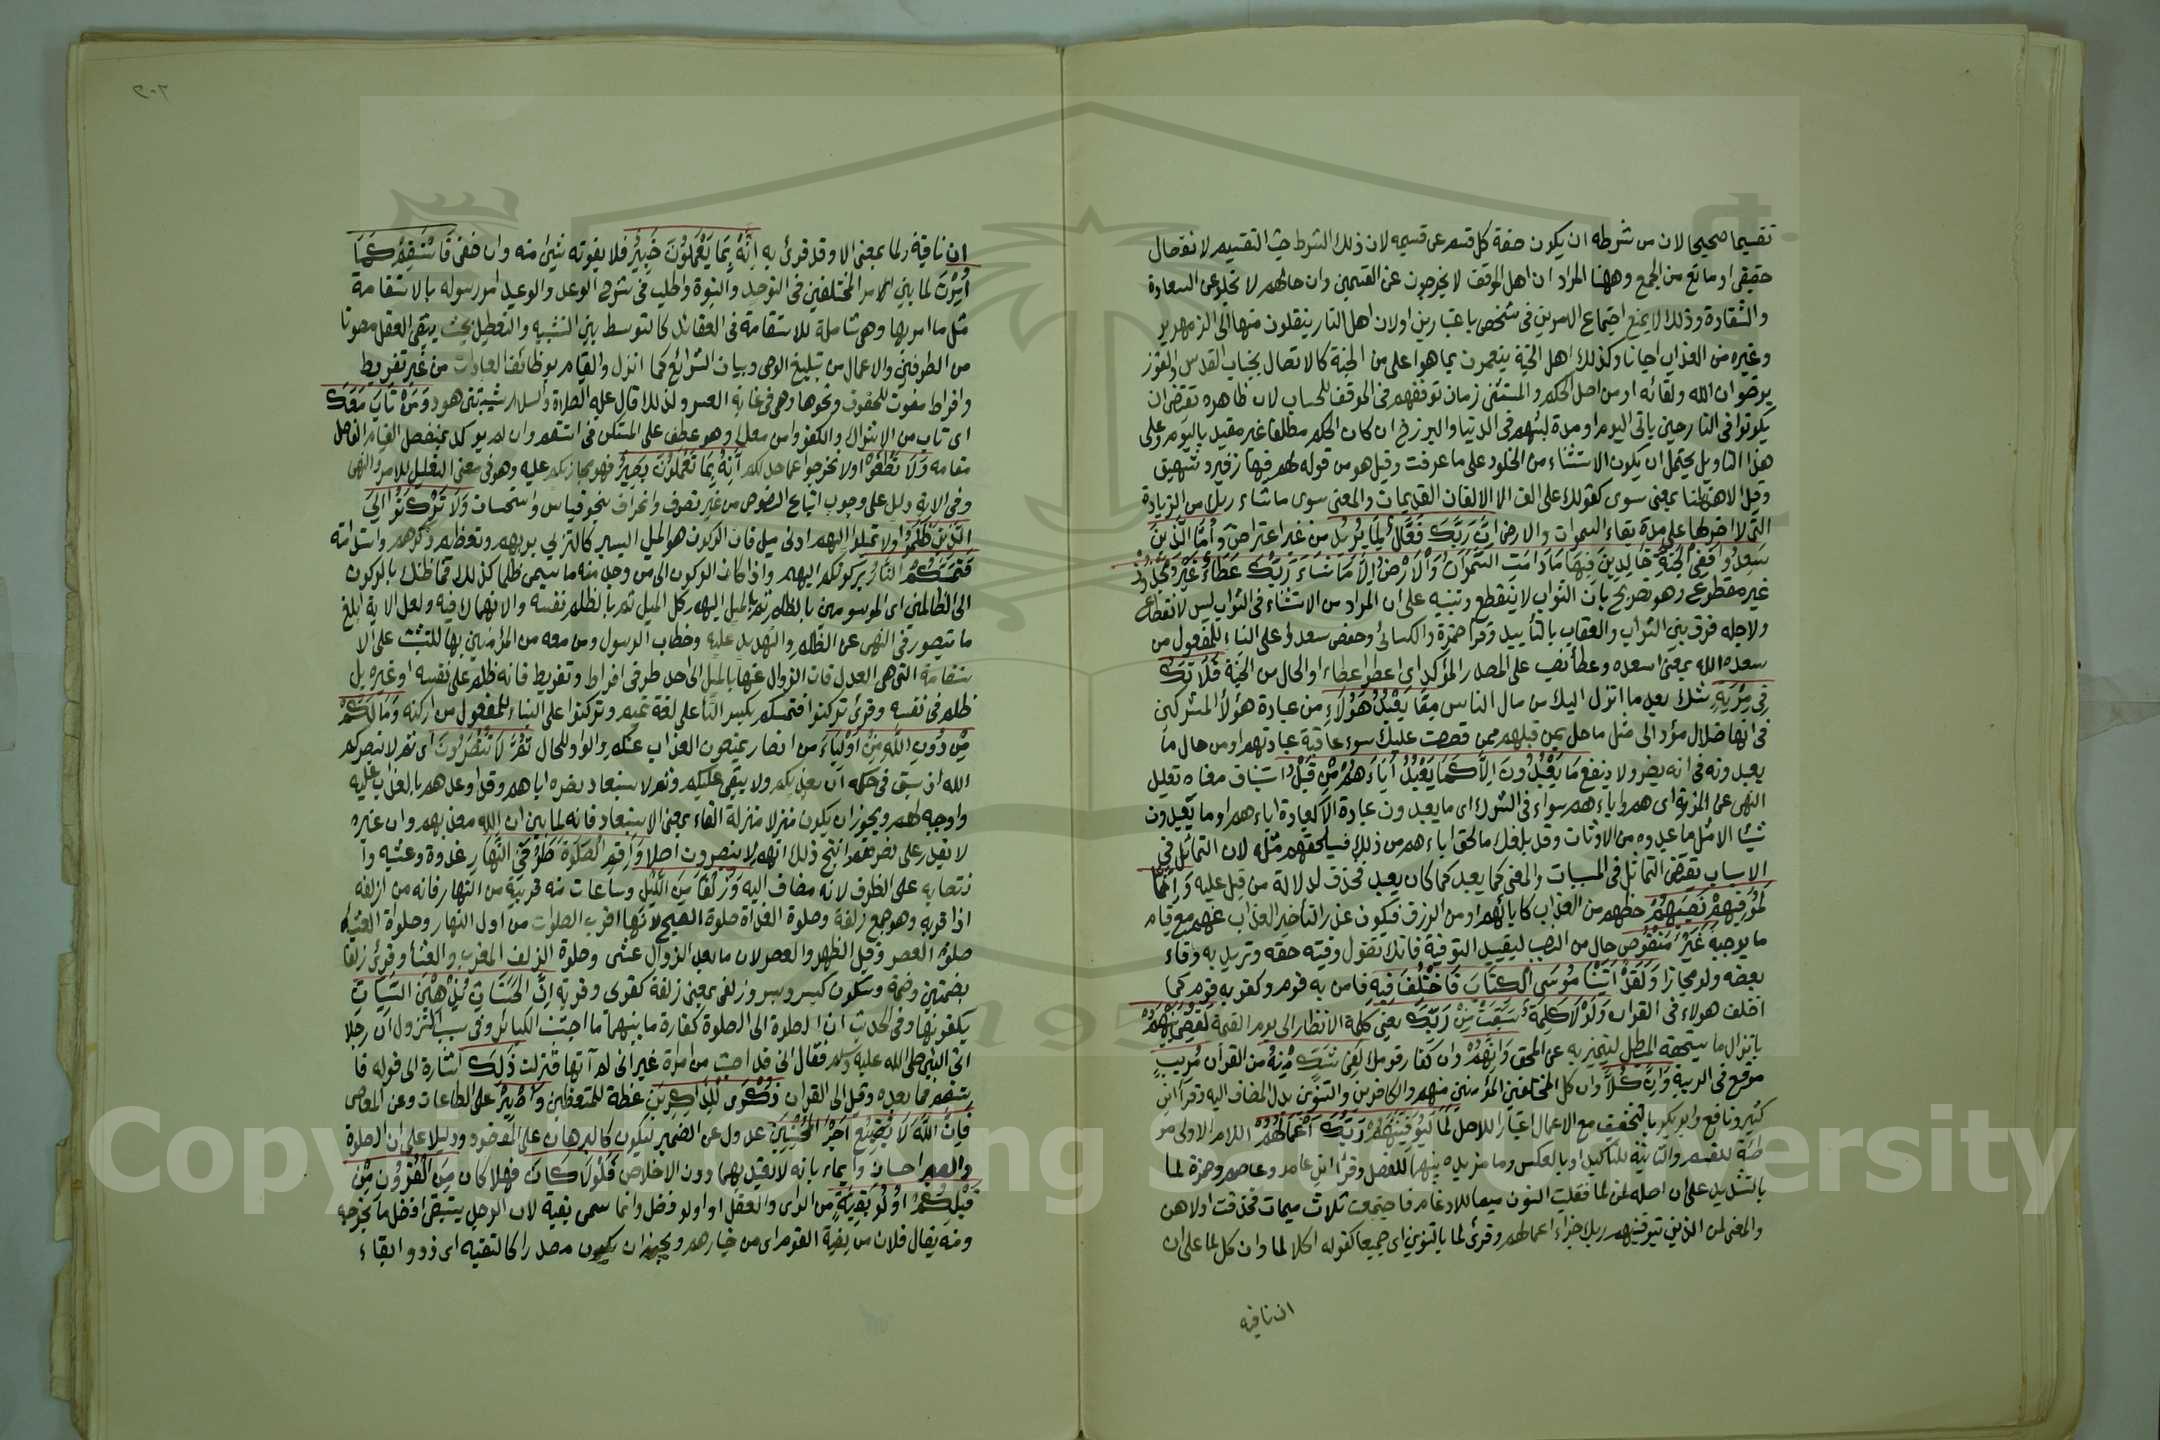 تقسيما صحيحا لان من شرطه ان يكون صفة كل قسم عن قسيمه لان ذلك الشرط حيث التقسيم لانفصال
حقيقى او مانع من الجمع وههنا المراد ان اهل الموقف لا يخرجون عن القسمين وان حالهم لا تخلو عن السعادة
والشقاوة وذلك لا يمنع اجتماع الامرين فى شخص باعتبارين اولان اهل النار ينقلون منها الى الزمهرير
وغيره من العذاب احيانا وكذلك اهل الجنة ينعمون بما هو اعلى من الجنة كالاتصال بجناب القدس والفوز
برضوان الله ولقائه او من اصل الحكم والمستثنى زمان توقفهم فى الموقف للحساب لان ظاهره تقتضى ان
يكونوا فى النار حين ياتى اليوم او مدة لبثهم فى الدنيا والبرزخ ان كان الحكم مطلقا غير مقيد باليوم وعلى
هذا التاويل يحتمل ان يكون الاستثناء من الخلود على ما عرفت وقيل هو من قوله لهم فيها زفير وشهيق
وقيل الا ههنا بمعنى سوى كقولك على الف الا الالفان القديمان والمعنى سوى ما شاء ربك من الزيادة
التى لا اخر لها على مدة بقاء السموات والارض اِنَّ رَبَّكَ فَعَّالٌ لِمَا يُرِيْدُ من غير اعتراض وَاَمَّا الَّذِينَ
سُعِدُوْا فَفِى الْجَنَّةِ خَالِدِيْنَ فِيْهَا مَا دَامَتِ السَّمٰوَاتُ وَالْاَرْضُ اِلَّا مَا شَاءَ رَبُّكَ عَطَاءً غَيْرَ مَجْذُوْذٍ
غير مقطوع وهو تصريح بان الثواب لا ينقطع وتنبيه على ان المراد من الاستثناء فى الثواب ليس لانقطاع
ولاجله فرق بين الثواب والعقاب بالتأييد وقرأ حمزة والكسائى وحفص سعدوا على البناء للمفعول من
سعده الله بمعنى اسعده وعطأ نصب على المصدر المؤكد اى اعطوا عطاء او الحال من الجنة فَلَا تَكُ
فِى مِرْيَةٍ شك بعد ما انزل اليك من مال الناس مِمَّا يَعْبُدُ هٰؤُلَاءِ من عبادة هؤلأ المشركين
فى انها ضلال مؤد الى مثل ما حل بمن قبلهم ممن قصصت عليك سوء عاقبة عبادتهم او من حال ما
يعبدونه فى انه يضر ولا ينفع مَا يَعْبُدُوْنَ اِلَّا كَمَا يَعْبُدُ اٰبَاءَهُمْ مِنْ قَبْلُ استيناف معناه تعليل
النهى عن المرية اى هم واباءهم سواء فى الشرك اى ما يعبدون عبادة الا كعبادة اباءهم او ما يعبدون
شيئا الا مثل ما عبدوه من الاوثات وقد بلغك ما لحق اباءهم من ذلك فسيلحقهم مثله لان التماثل فى
الاسباب تقتضى التماثل فى المسببات والمعنى كما يعبد كما كان يعبد فحذف لدلالة من قبل عليه وَاِنَّا
لَمُوَفُّوهُمْ نَصِيْبَهُمْ حظهم من العذاب كابائهم او من الرزق فيكون عذر التاخير العذاب عنهم مع قيام
ما يوجبه غَيْرَ مَنْقُوْصٍ حال من النصب لتقييد التوفية فانك تقول وفيته حقه وتريد به وفاء
بعضه ولو مجازا وَلَقَدْ اٰتَيْنَا مُوْسَى الْكِتَابَ فَاخْتُلِفَ فِيْهِ فامن به قوم وكفر به قوم كما
اختلف هولاء فى القران وَلَوْلَا كَلِمَةٌ سَبَقَتْ مِنْ رَبِّكَ يعنى كلمة الانظار الى يوم القيمة لَقُضِىَ بَيْنَهُمْ
بانزال ما يستحقه المبطل ليتميز به عن المحق وَاِنَّهُمْ وان كفار قومك لَفِى شَكٍّ مِنْهُ من القرآن مُرِيْبٍ
موقع فى الريبة وَاِنَّ كُلًّا وان كل المختلفين المؤمنين منهم والكافرين والتنوين بدل المضاف اليه وقرأ ابن
كثير ونافع وابو بكر بالتخفيف مع الاعمال اعتبارا للاصل لَمَّا لَيُوَفِّيَنَّهُمْ رَبُّكَ اَعْمَالَهُمْ اللام الاولى مو
طئة للقسم والثانية للتأكيد او بالعكس وما مزيده بينهما للفصل وقرأ ابن عامر وعاصم وحمزة لما
بالتشديد على ان اصله لمن لما فقلبت النون ميما للادغام فاجتمعت ثلاث ميمات فحذفت اولاهن
والمعنى لمن الذين تيوفينهم ربك جزاء اعمالهم وقرئ لما بالتنوين اى جميعا كقوله اكلا لما وان كل لما على ان
ان نافيه
٢٠٢
ان نافية ولما بمعنى الا وقد قرئ به اِنَّهُ بِمَا يَعْمَلُوْنَ خَبِيْرٌ فلا يفوته شيئ منه وان خفى فَاسْتَقِمْ كَمَا
اُمِرْتَ لما بين الامر المختلفين فى التوحيد والنبوة واطنب فى شرح الوعد والوعيد امر رسوله بالاستقامة
مثل ما امر بها وهى شاملة للاستقامة فى العقائد كالتوسط بين التشبيه والتعطيل بحيث يبقى العقل مصونا
من الطرفين والاعمال من تبليغ الوحى وبيان الشرائع كما انزل والقيام بوظائف العبادات من غير تفريط
وافراط مفوت للحقوق ونحوها وهى فى غاية العسر ولذلك قال عليه الصلاة والسلام شيبتنى هود وَمَنْ تَابَ مَعَكَ
اى تاب من الاشراك والكفر وامن معك وهو عطف على المستكن فى استقم وان لم يوكد بمنفصل لقيام الفاصل
مقامه وَلَا تَطْغَوْا ولا تخرجوا عما حد لكم اِنَّهُ بِمَا تَعْمَلُوْنَ بَصِيْرٌ فهو مجازيكم عليه وهو فى معنى التعليل للامر والنهى
وفى الاية دليل على وجوب اتباع النصوص من غير تصرف وانحراف بنحو قياس واستحسان وَلَا تَرْكَنُوْا اِلَى
الَّذِيْنَ ظَلَمُوْا ولا تميلوا اليهم ادنى ميل فان الركون هو الميل اليسير كالتزيى بزيهم وتعظيم ذكرهم واستدامته
فَتَمَسَّكُمُ النَّارُ بركونكم اليهم واذا كان الركون الى من وجد منه ما يسمى ظلما كذلك فما ظنك بالركون
الى الظالمين اى الموسومين بالظلم ثم بالميل اليهم كل الميل ثم بالظلم نفسه والانهماك فيه ولعل الاية ابلغ
ما يتصور فى النهى عن الظلم والتهديد عليه وخطاب الرسول ومن معه من المؤمنين بها للتثبت على الا
ستقامة التى هى العدل فان الزوال عنها بالميل الى احد طرفى افراط وتفريط فانه ظلم على نفسه او غيره بل
ظلم فى نفسه وقرئ تركنوا فتمسكم بكسر التأ على لغة تميم وتركنوا على البناء للمفعول من اركنه وَمَا لَكُمْ
مِنْ دُوْنِ اللّٰهِ مِنْ اَوْلِيَاءَ من انصار يمنعون العذاب عنكم والواو للحال ثُمَّ لَا تُنْصَرُوْنَ اى ثم لا ينصركم
الله اذ سبق فى حكمه ان يعذبكم ولا يبقى عليكم وثم لاستبعاد نصره اياهم وقد اوعدهم بالعذاب عليه
واوجبه لهم ويجوز ان يكون منزلا منزلة الفاء بمعنى الاستبعاد فانه لما بين ان الله معذبهم وان غيره
لا يقدر على نصرهم انتج ذلك انهم لا ينصرون اصلا وَاَقِمِ الصَّلٰوةَ طَرَفَىِ النَّهَارِ غدوة وعشيه وا
نتصابه على الظرف لانه مضاف اليه وَزُلَفًا مِنَ الَّيْلِ وساعات منه قريبة من النهار فانه من ازلفه
اذا قربه وهو جمع زلفة وصلوة الغداة صلوة الصبح لانها اقرب الصلوات من اول النهار وصلوة العشية
صلوة العصر وقيل الظهر والعصر لان ما بعد الزوال عشى وصلوة الزلف المغرب والعشأ وقرئ زلفا
بضمتين وضمة وسكون كبسر وبسر وزلفى بمعنى زلفة كقربى وقربه اِنَّ الْحَسَنَاتِ يُذْهِبْنَ السَّيِّاٰتِ
يكفرنها وفى الحديث ان الصلوة الى الصلوة كفارة ما بينهما ما اجتنب الكبائر وفى سبب النزول ان رجلا
اتى النبى صلى الله عليه وسلم فقال انى قد اصبت من امراة غير انى لم آتها فنزلت ذٰلِكَ اشارة الى قوله فا
ستقم فما بعده وقيل الى القران ذِكْرٰى لِلذَّاكِرِيْنَ عظة للمتعظين وَاصْبِرْ على الطاعات وعن المعاصى
فَاِنَّ اللّٰهَ لَا يُضِيْعُ اَجْرَ الْمُحْسِنِيْنَ عدول عن الضمير ليكون كالبرهان على المقصود ودليلا على ان الصلوة
والصبر احسان وايماء بانه لا يعتد بهما دون الاخلاص فَلَوْلَا كَانَ فهلا كان مِنَ الْقُرُوْنِ مِنْ
قَبْلِكُمْ اُولُوْ بَقِيَّةٍ من الرأى والعقل او اولو فضل وانما سمى بقية لان الرجل يستبقى افضل ما يخرجه
ومنه يقال فلان من بقية القوم اى من خيارهم ويجوز ان يكون مصدرا كالتقيه اى ذوو ابقاء